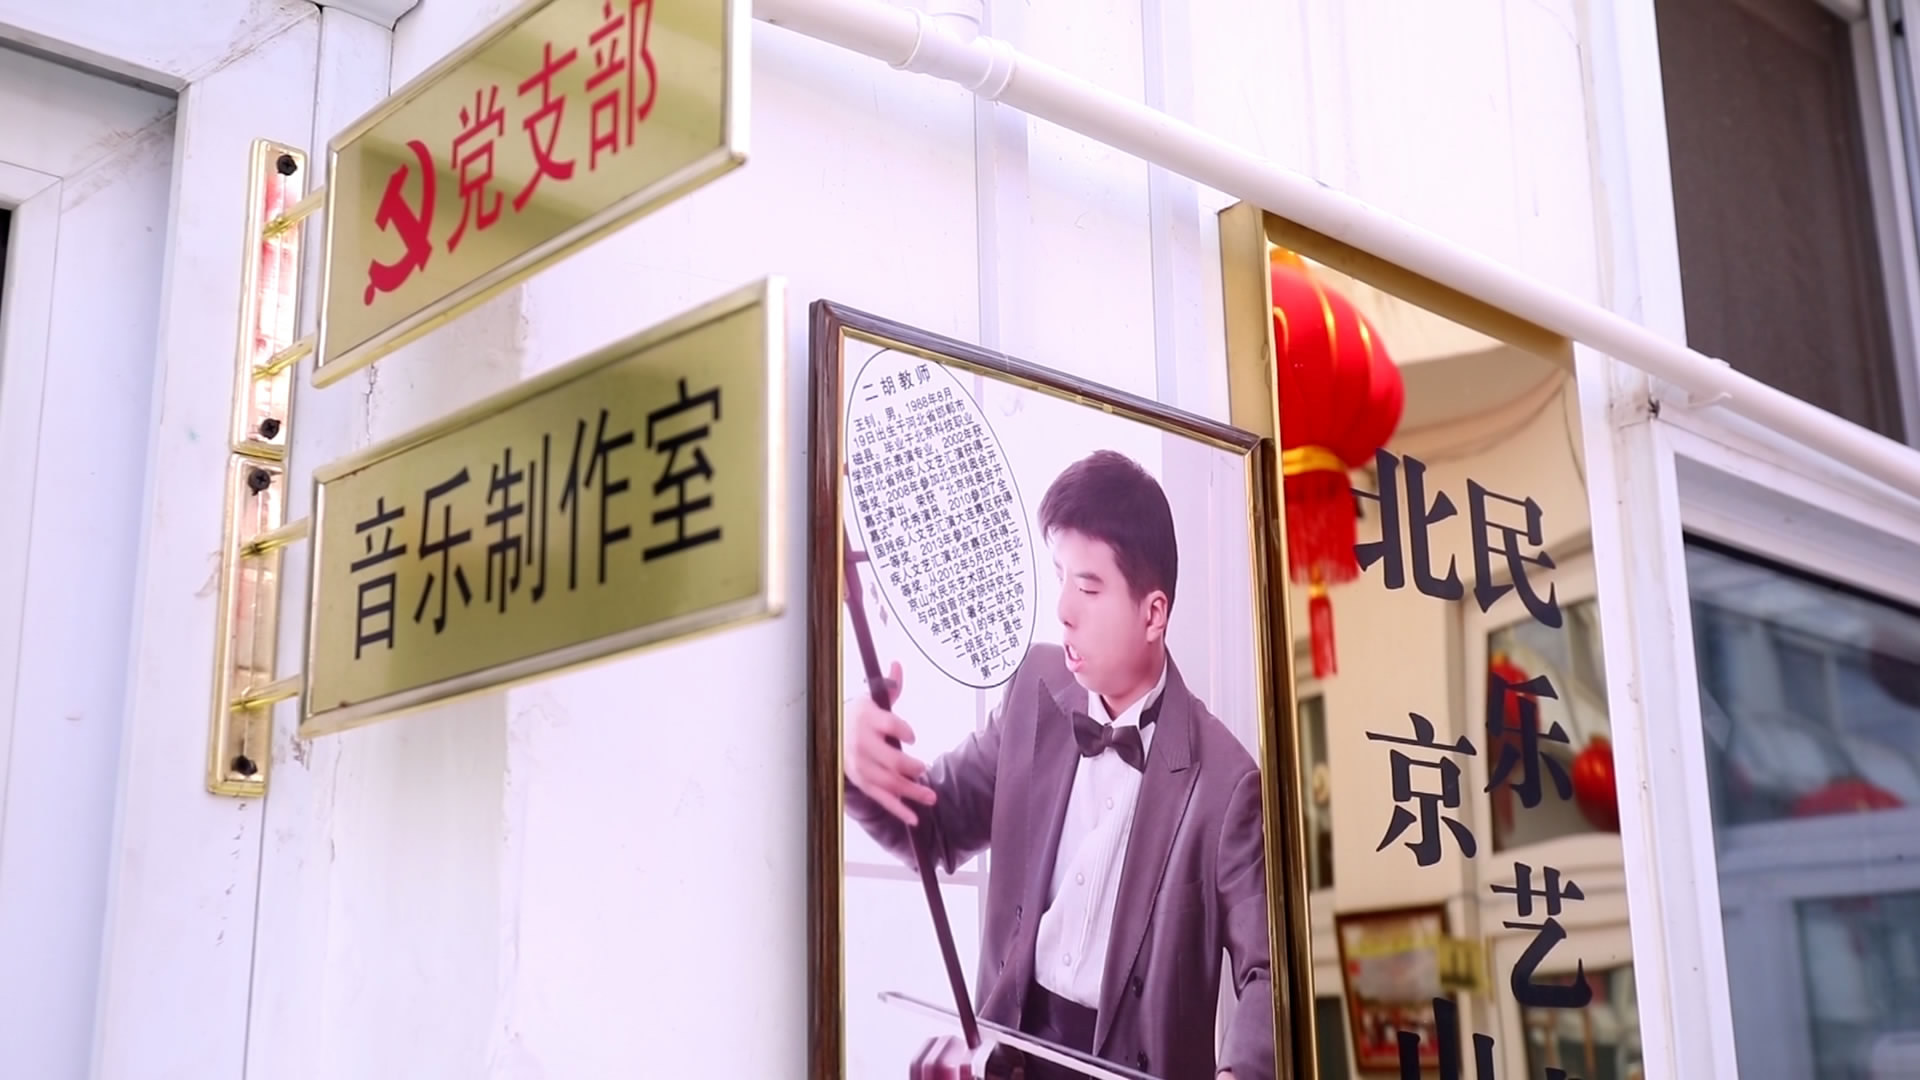 党支部
音乐制作室
二胡教师
王钊，男，1988年8月
19日出生于河北省邯郸市
磁县。毕业于北京科技职业
学院音乐表演专业，2002年获
得河北省残疾人文艺汇演获得二
等奖。2008年参加北京残奥会开
幕式演出，荣获“北京残奥会开
幕式”优秀演员。2010参加了全
国残疾人文艺汇演大连赛区获得
一等奖。2013年参加了全国残
疾人文艺汇演北京赛区获得二
等奖。从2012年5月28日在北
京山水民乐艺术团工作，并
与中国音乐学院研究生一
余海音（著名二胡大师
一宋飞）的学生学习
二胡至今；是世
界反拉二胡
第一人。
北京山
民乐艺